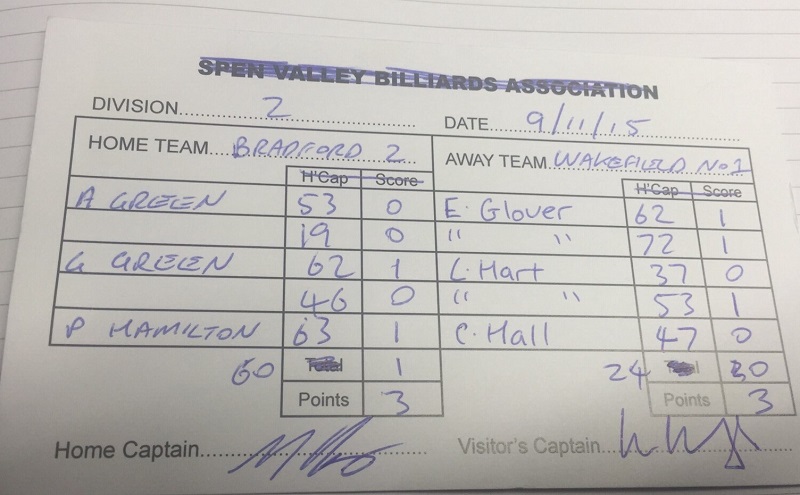 SPEN VALLEY BILLIARDS ASSOCIATION
DIVISION 2 DATE 9/11/15
HOME TEAM BRADFORD 2 AWAY TEAM WAKEFIELD No 1
H'Cap Score H'Cap Score
A GREEN 53 0 E. Glover 62 1
19 0 " " 72 1
G GREEN 62 1 L. Hart 37 0
46 0 " " 53 1
P HAMILTON 63 1 C. Hall 47 0
60 1 24 0
Points 3 Points 3
Home Captain Visitor's Captain